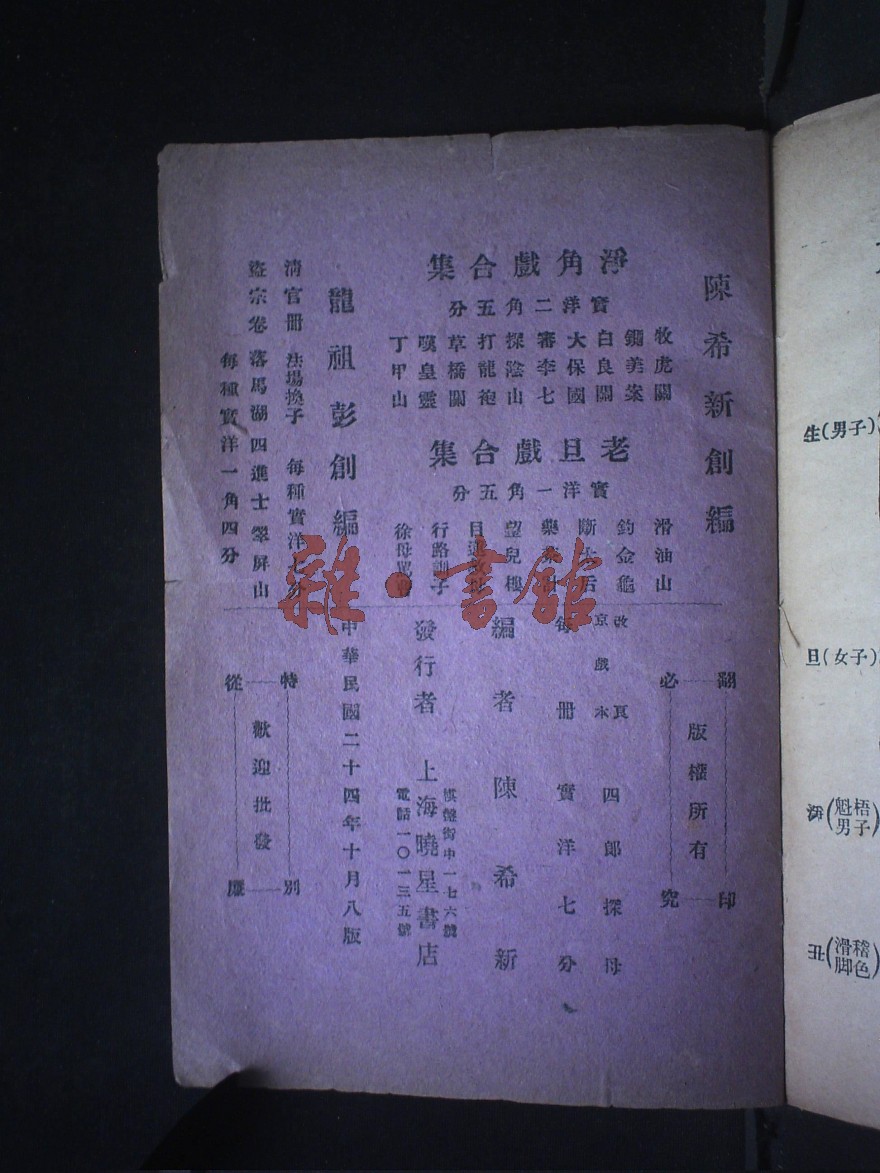 陳希新創編
淨角戲合集
實洋二角五分
牧虎關
鍘美案
白良關
大保國
審李七
探陰山
打龍袍
草橋關
嘆皇靈
丁甲山
老旦戲合集
實洋一角五分
滑油山
釣金龜
斷太后
藥茶計
望兒樓
目連救母
行路訓子
徐母罵曹
龍祖彭創編
清官冊 法場換子 每種實洋七分
盜宗卷 落馬湖 四進士 翠屏山
每種實洋一角四分
翻印必究
版權所有
改良京戲本 四郎探母
每冊實洋七分
編者 陳希新
發行者 上海曉星書店
棋盤街中一七六號
電話一〇一三五號
中華民國二十四年十月八版
特別從廉
歡迎批發
雜·書館
生(男子)
旦(女子)
淨(魁梧男子)
丑(滑稽脚色)